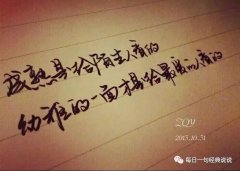 成熟是给陌生人看的
幼稚的一面才是给最爱的人看的
ZQY
2013.10.31
每日一句经典说说